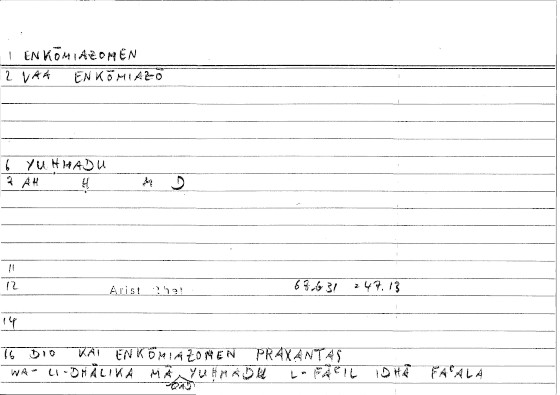 1 ENKŌMIAZOMEN
2 VAA ENKŌMIAZŌ
6 YUḤMADU
7 AH Ḥ M D
11
12 Arist Rhet 67b31 = 47.13
14
16 DIO KAI ENKŌMIAZOMEN PRAXANTAS
WA-LI-DHĀLIKA MĀ YUḤMADU L-FĀʿIL IDHĀ FAʿALA